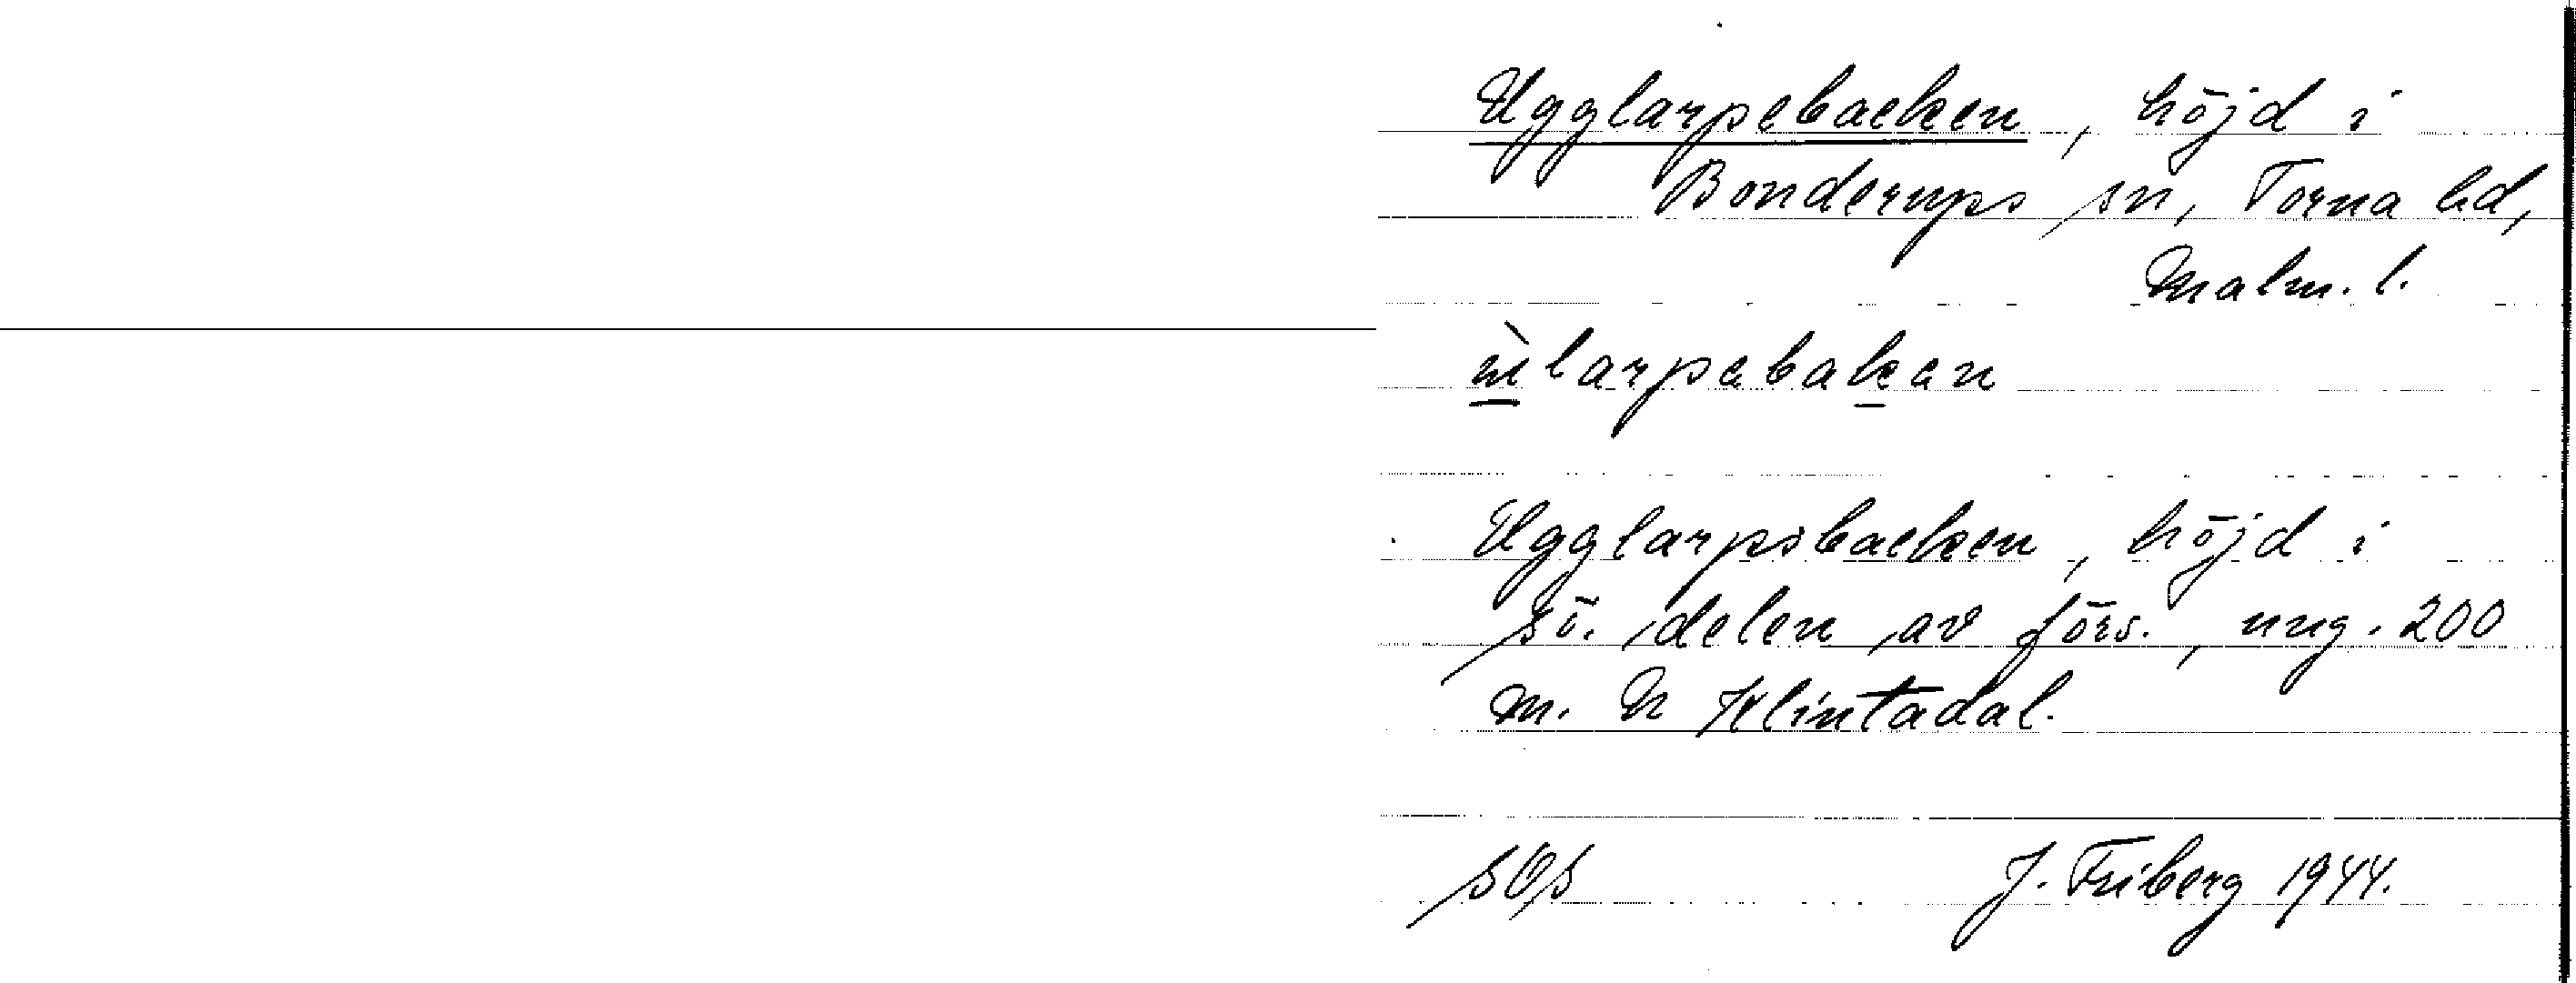 Ugglarpebacken, höjd i
Bonderups sn, Torna hd,
Malm. l.
Ugglarpsbacken, höjd i
sö. delen av förs., ung. 200
m. N Klintadal.
SOS J. Friberg 1944.